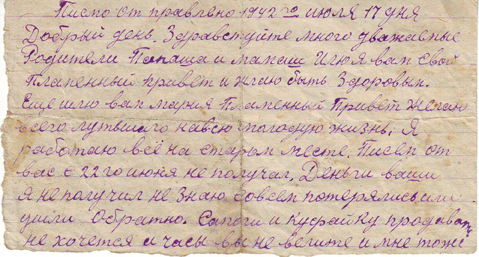 Писмо от правлено 1942 го июля 17 дня
Добрый день. Здравствуйте много уважаемые
Родители Папаша и мамаш Шлю я вам свой
Пламенный привет и жлаю быть Здоровым.
Ещё шлю вам Мария Пламенный Привет желаю
всего лутьшаго на всю молодую жизнь. Я
работаю всё на старом месте. Писем от
вас с 22 го июня не получал. Деньги ваши
я не получил не знаю совсем потерялись или
ушли Обратно. Сапоги и куфайку продавать
не хочется и часы вы не велите и мне тоже